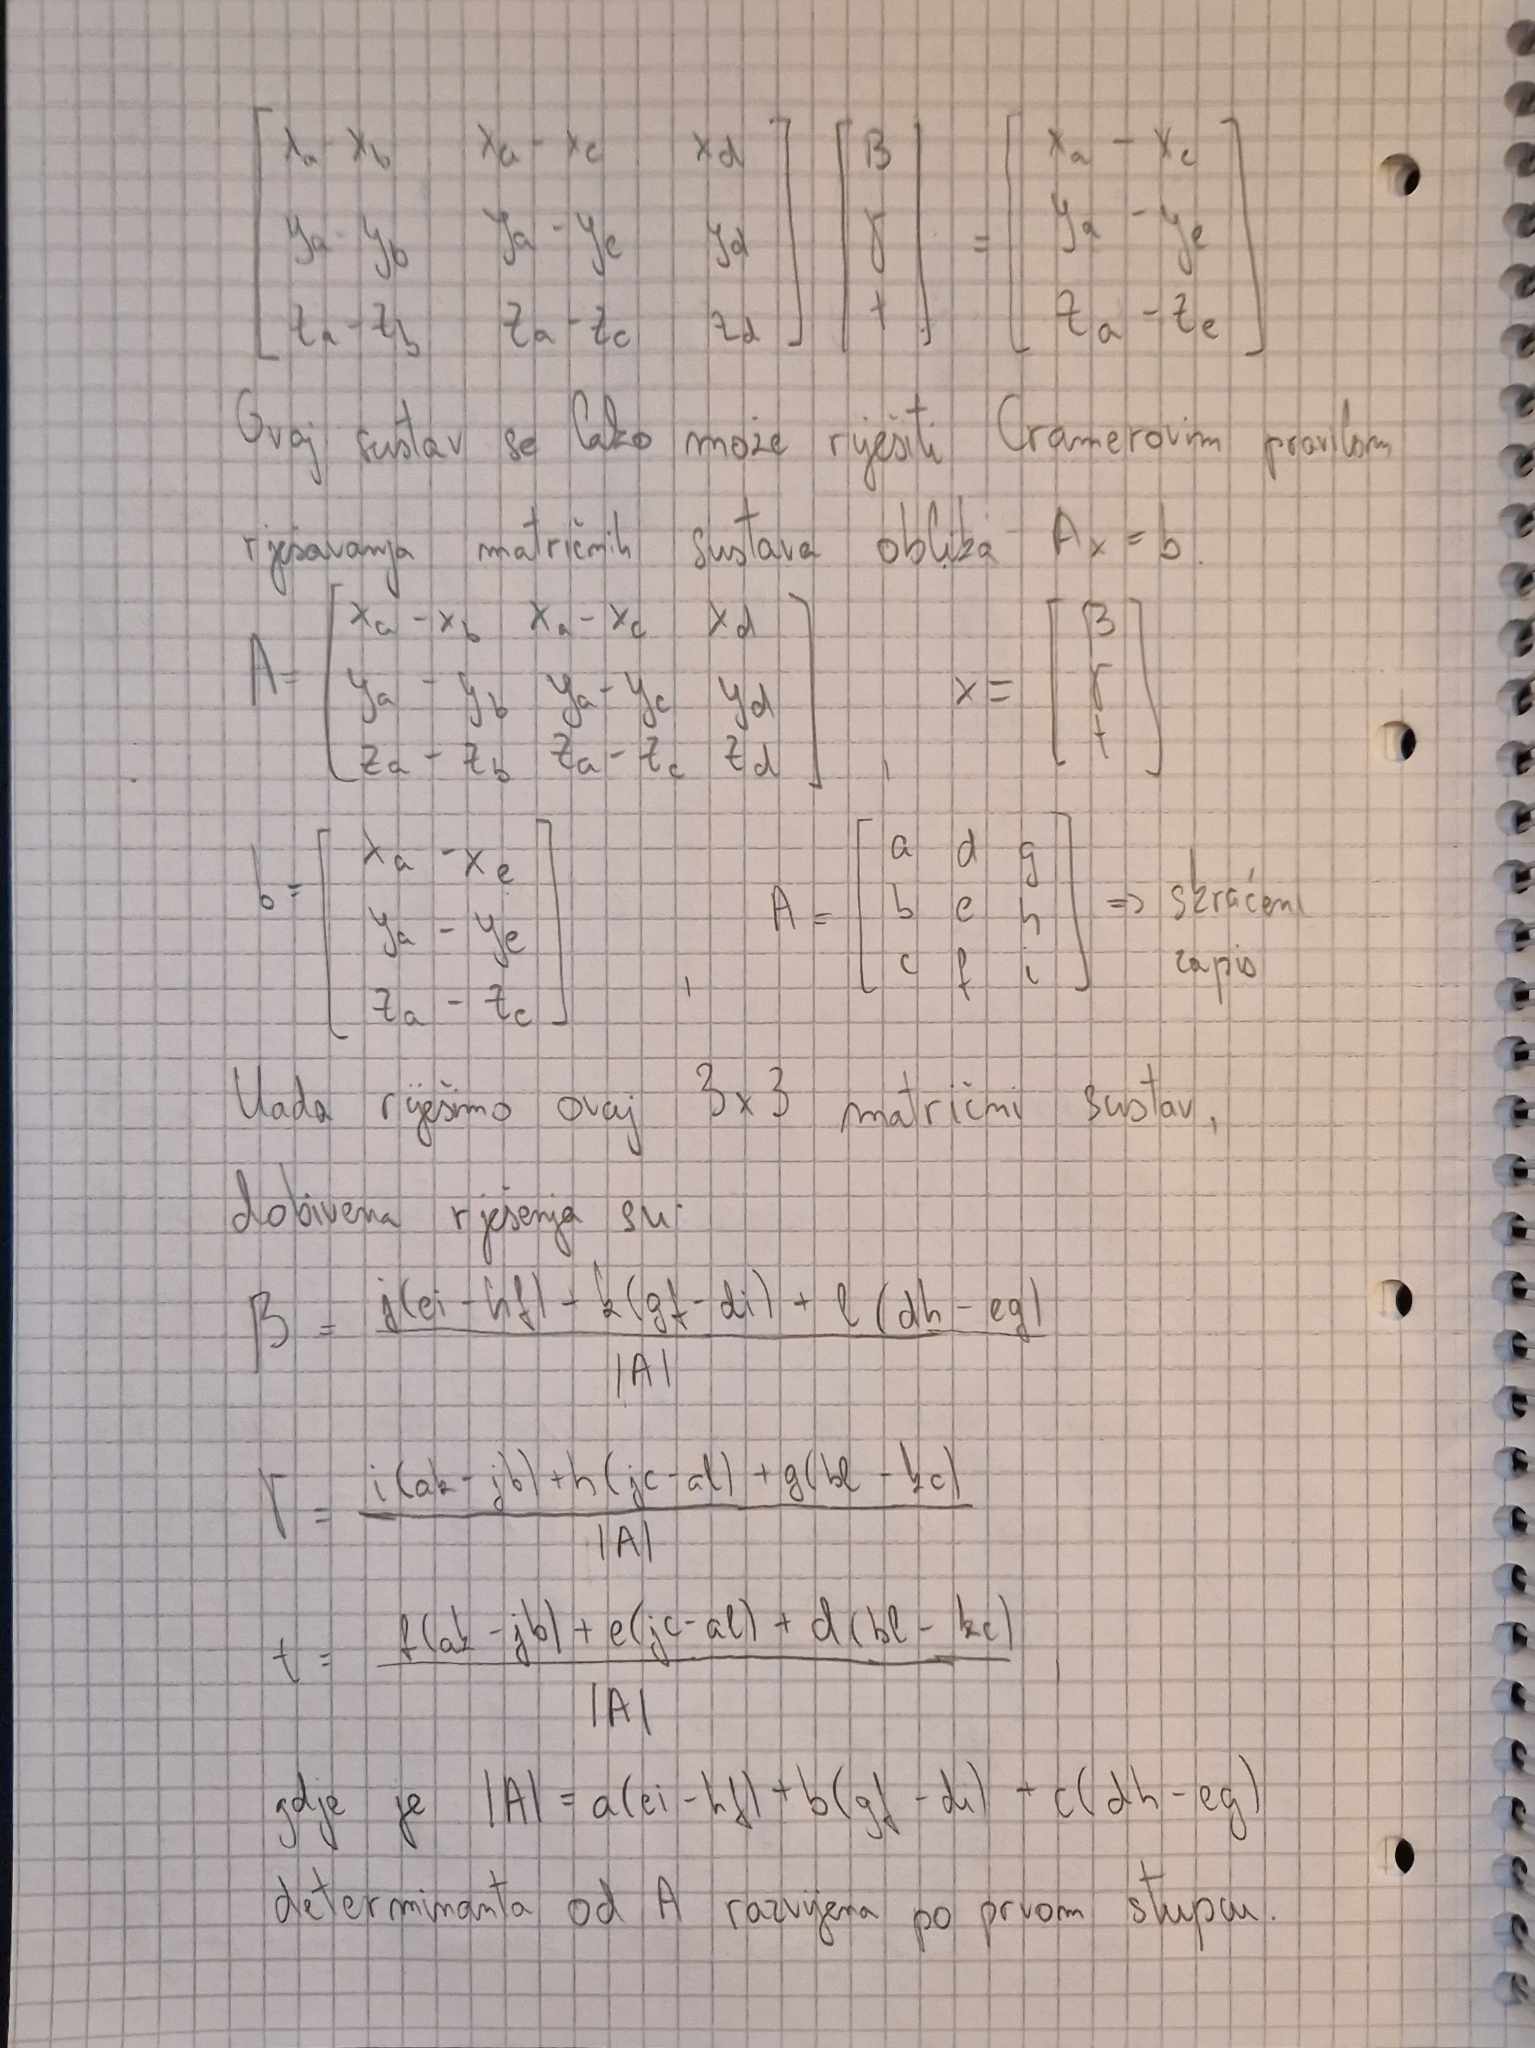 [ xa - xb   xa - xc   xd ] [ β ] = [ xa - xe ]
[ ya - yb   ya - yc   yd ] [ γ ] = [ ya - ye ]
[ za - zb   za - zc   zd ] [ t ] = [ za - ze ]
Ovaj sustav se lako može riješiti Cramerovim pravilom
rješavanja matričnih sustava oblika Ax = b.
A = [ xa - xb   xa - xc   xd ], x = [ β ]
[ ya - yb   ya - yc   yd ] [ γ ]
[ za - zb   za - zc   zd ] [ t ]
b = [ xa - xe ], A = [ a d g ] => skraćeni
[ ya - ye ] [ b e h ] zapis
[ za - ze ] [ c f i ]
Kada riješimo ovaj 3x3 matrični sustav,
dobivena rješenja su:
β = j(ei - hf) + k(gf - di) + l(dh - eg)
|A|
γ = i(ak - jb) + h(jc - al) + g(bl - kc)
|A|
t = f(ak - jb) + e(jc - al) + d(bl - kc)
|A|
gdje je |A| = a(ei - hf) + b(gf - di) + c(dh - eg)
determinanta od A razvijena po prvom stupcu.